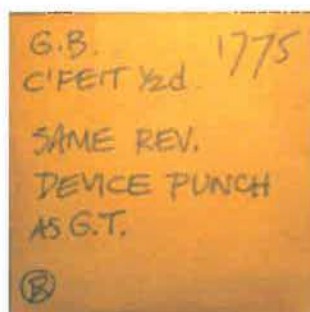 G.B. 1775
C'FEIT ½d.
SAME REV.
DEVICE PUNCH
AS G.T.
B